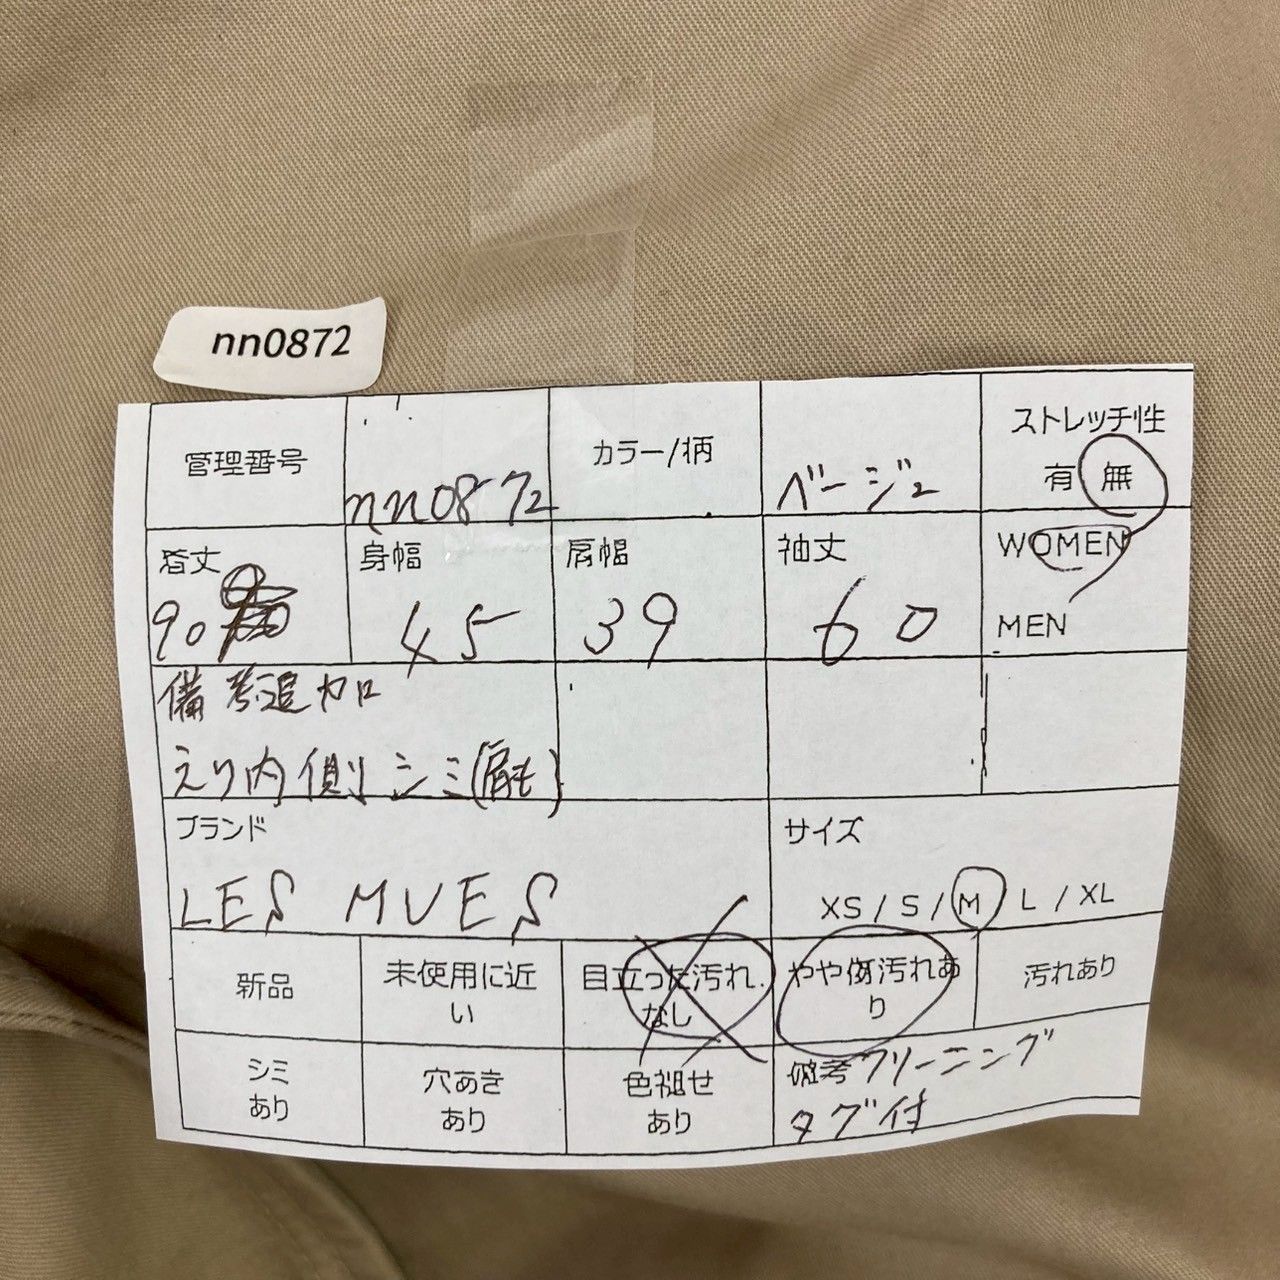 nn0872
管理番号 nn0872 カラー/柄 ベージュ ストレッチ性
有 無
着丈 身幅 肩幅 袖丈 WOMEN
90 45 39 60 MEN
備考追加
えり内側シミ(肩も)
ブランド サイズ
LES MUES XS / S / M / L / XL
新品 未使用に近い 目立った汚れ.なし やや傷汚れあり 汚れあり
シミあり 穴あきあり 色褪せあり 備考 クリーニング
タグ付